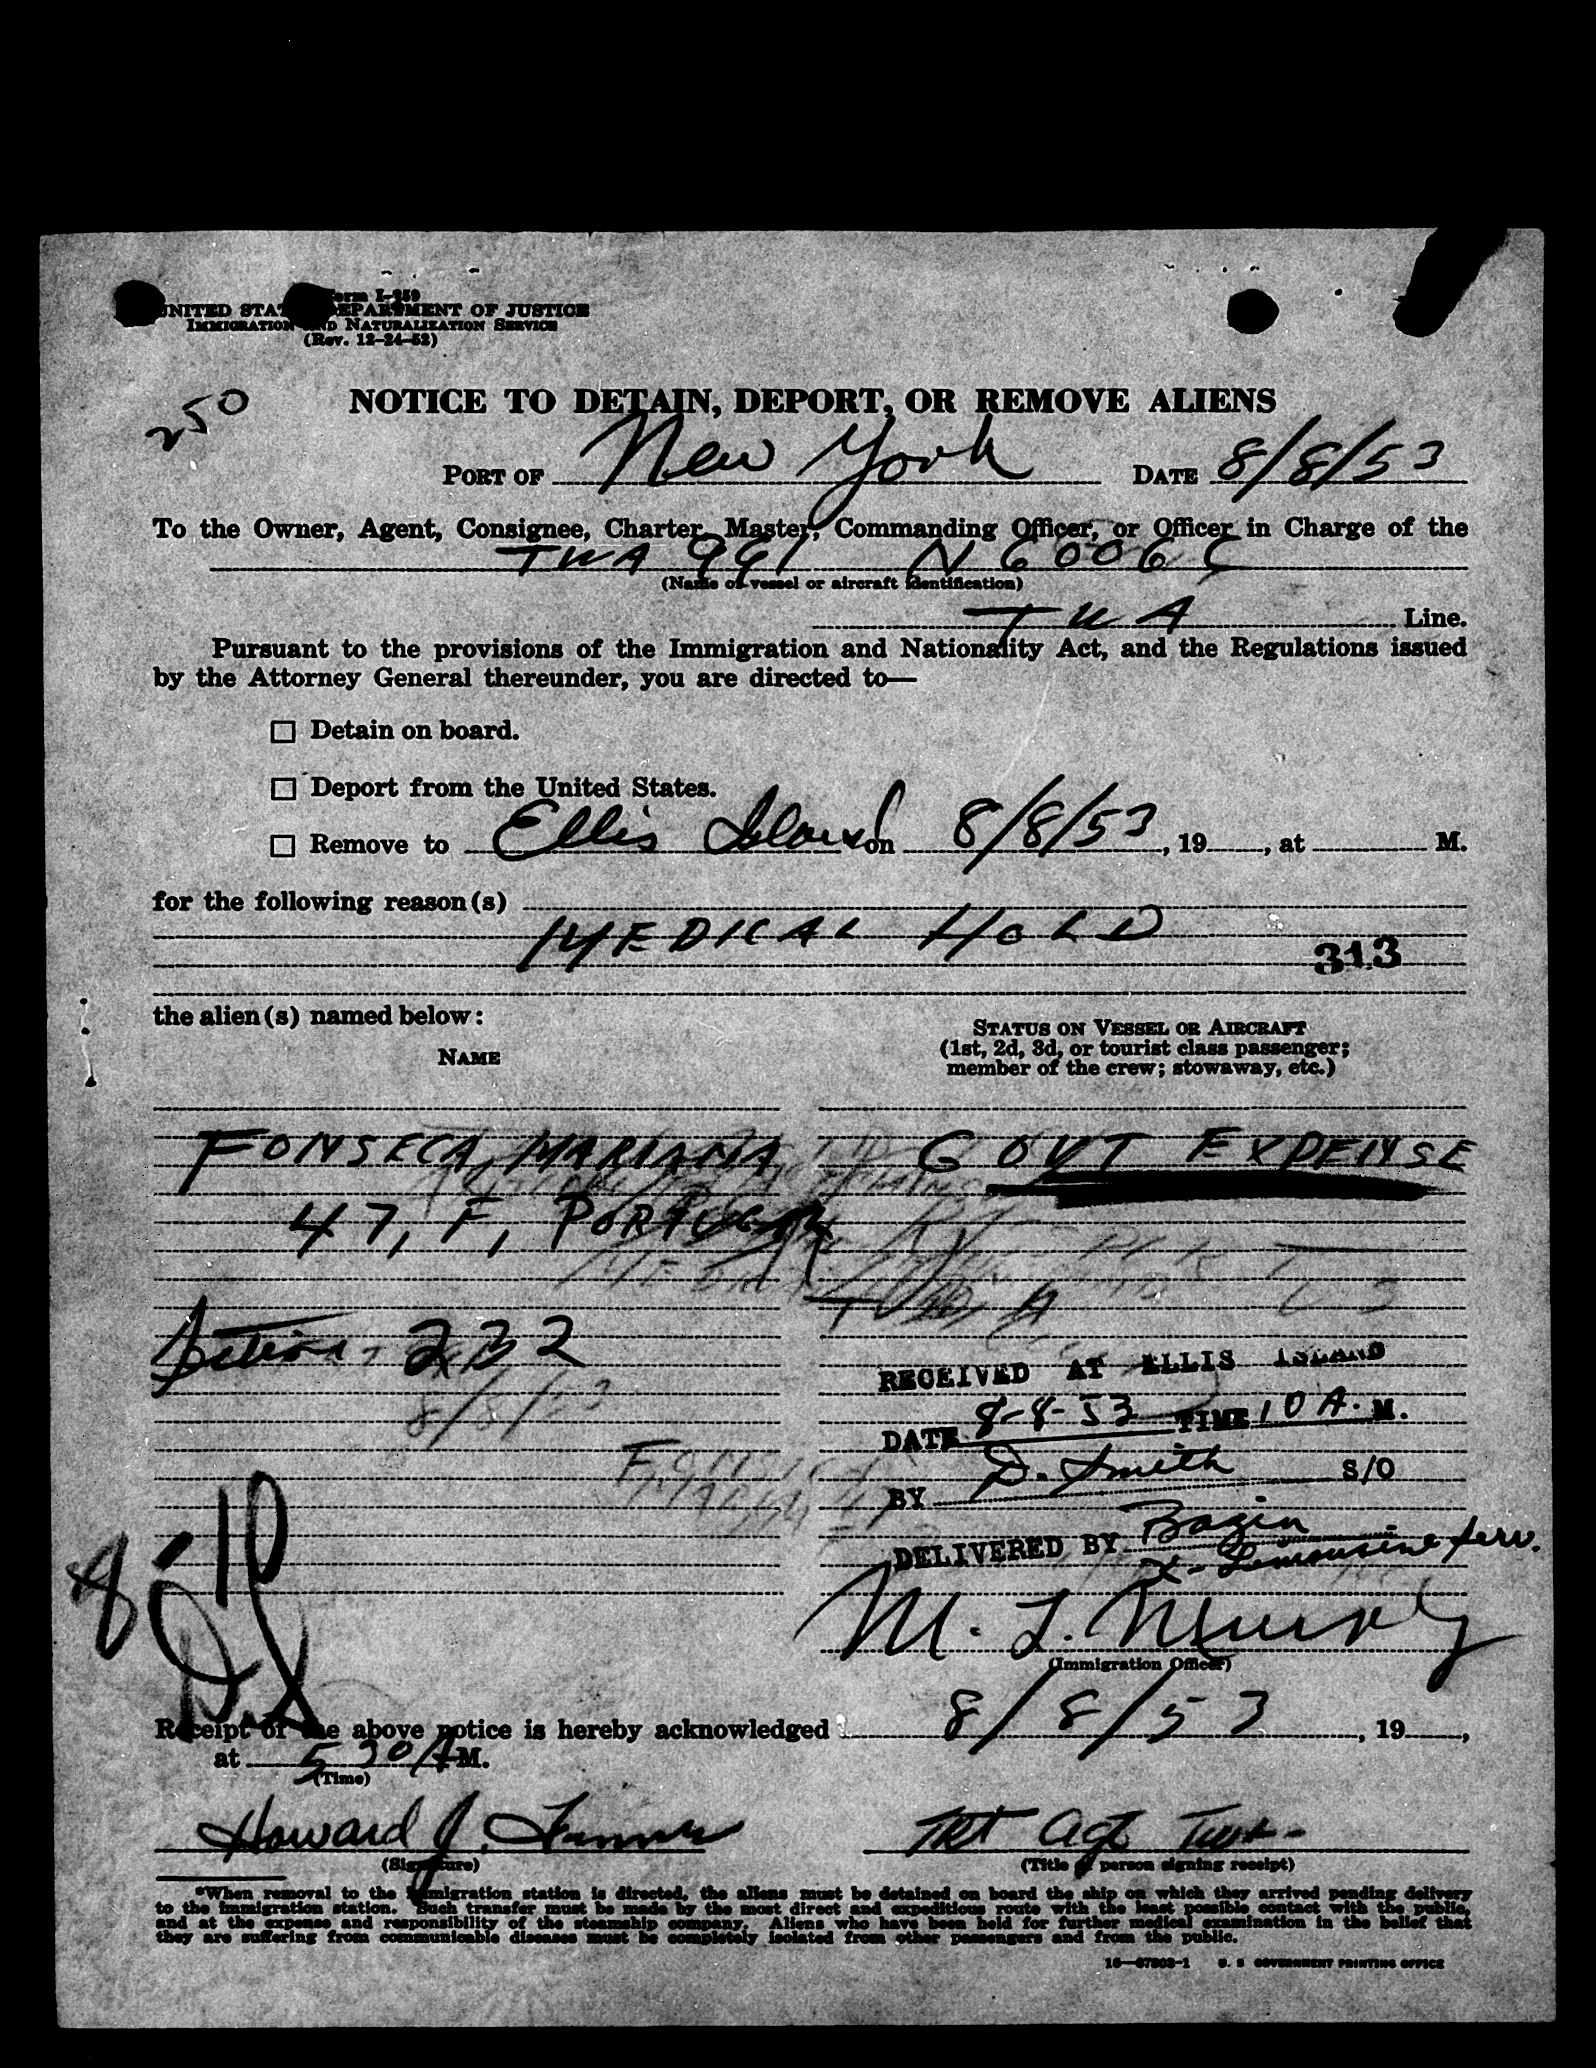 Form I-259
UNITED STATES DEPARTMENT OF JUSTICE
IMMIGRATION AND NATURALIZATION SERVICE
(Rev. 12-24-52)
250
NOTICE TO DETAIN, DEPORT, OR REMOVE ALIENS
PORT OF New York DATE 8/8/53
To the Owner, Agent, Consignee, Charter, Master, Commanding Officer, or Officer in Charge of the
TWA 961 N 6006 C
(Name of vessel or aircraft identification)
TWA Line.
Pursuant to the provisions of the Immigration and Nationality Act, and the Regulations issued
by the Attorney General thereunder, you are directed to—
☐ Detain on board.
☐ Deport from the United States.
☐ Remove to Ellis Island on 8/8/53, 19, at M.
for the following reason(s)
MEDICAL HOLD
313
the alien(s) named below:
NAME
STATUS ON VESSEL OR AIRCRAFT
(1st, 2d, 3d, or tourist class passenger;
member of the crew; stowaway, etc.)
FONSECA, MARIANA GOVT EXPENSE
47, F, PORTUGAL
Section 232
8/8/53
RECEIVED AT ELLIS ISLAND
DATE 8-8-53 TIME 10 A. M.
BY D. Smith S/O
DELIVERED BY Bazin
X-Limousine Serv.
M. L. Murphy
(Immigration Officer)
Receipt of the above notice is hereby acknowledged 8/8/53, 19,
at 5 30 A M.
(Time)
Howard J.
TRT Agt TWA
(Signature)
(Title of person signing receipt)
*When removal to the immigration station is directed, the aliens must be detained on board the ship on which they arrived pending delivery
to the immigration station. Such transfer must be made by the most direct and expeditious route with the least possible contact with the public,
and at the expense and responsibility of the steamship company. Aliens who have been held for further medical examination in the belief that
they are suffering from communicable diseases must be completely isolated from other passengers and from the public.
16—67803-1 U. S. GOVERNMENT PRINTING OFFICE